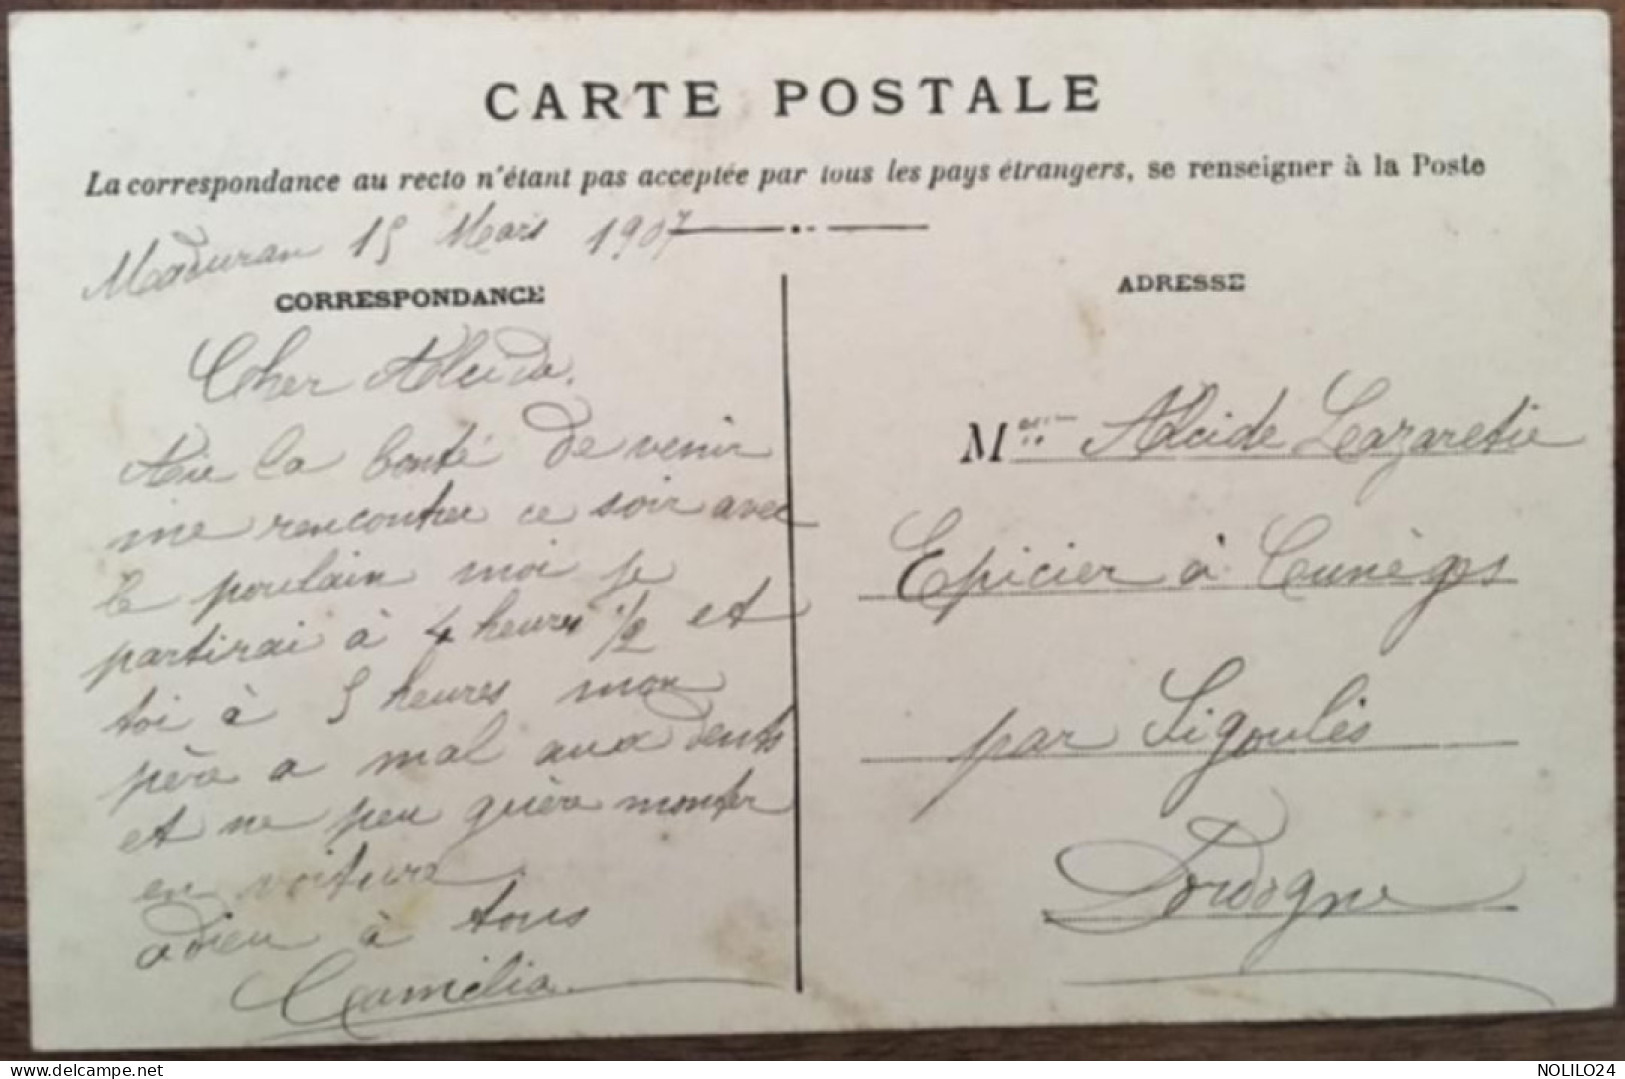 CARTE POSTALE
La correspondance au recto n'étant pas acceptée par tous les pays étrangers, se renseigner à la Poste
Maduran 15 Mars 1907
CORRESPONDANCE
Cher Alcide.
Aie la bonté de venir
me rencontrer ce soir avec
le poulain moi je
partirai à 4 heures 1/2 et
toi à 5 heures mon
père a mal aux dents
et ne peu guère monter
en voiture
adieu à tous
Camélia
ADRESSE
M Alcide Lazaretie
Epicier à Cunèges
par Sigoulès
Dordogne
delcampe.net
NOLILO24